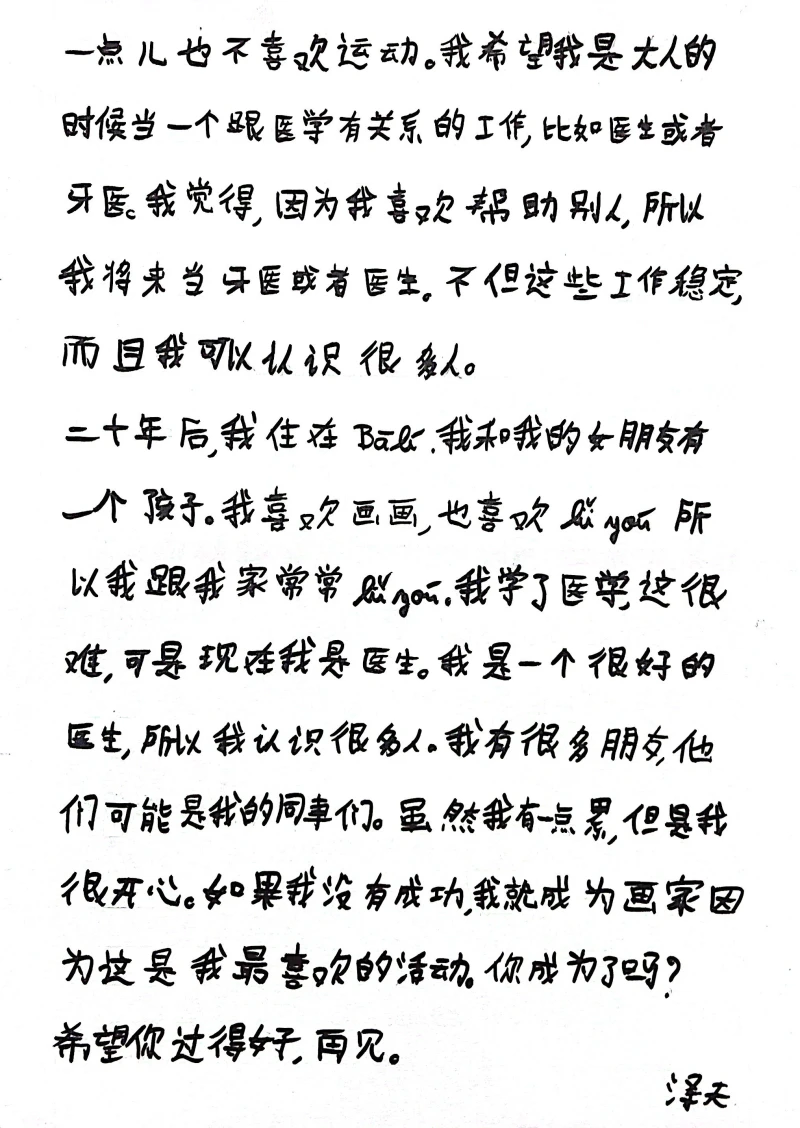 一点儿也不喜欢运动。我希望我是大人的
时候当一个跟医学有关系的工作,比如医生或者
牙医。我觉得,因为我喜欢帮助别人,所以
我将来当牙医或者医生。不但这些工作稳定,
而且我可以认识很多人。
二十年后,我住在Bālí.我和我的女朋友有
一个孩子。我喜欢画画,也喜欢lǚ yoú所
以我跟我家常常lǚ yoú.我学了医学,这很
难,可是现在我是医生。我是一个很好的
医生,所以我认识很多人。我有很多朋友,他
们可能是我的同事们。虽然我有一点累,但是我
很开心。如果我没有成功,我就成为画家因
为这是我最喜欢的活动。你成为了吗?
希望你过得好,再见。
泽夫